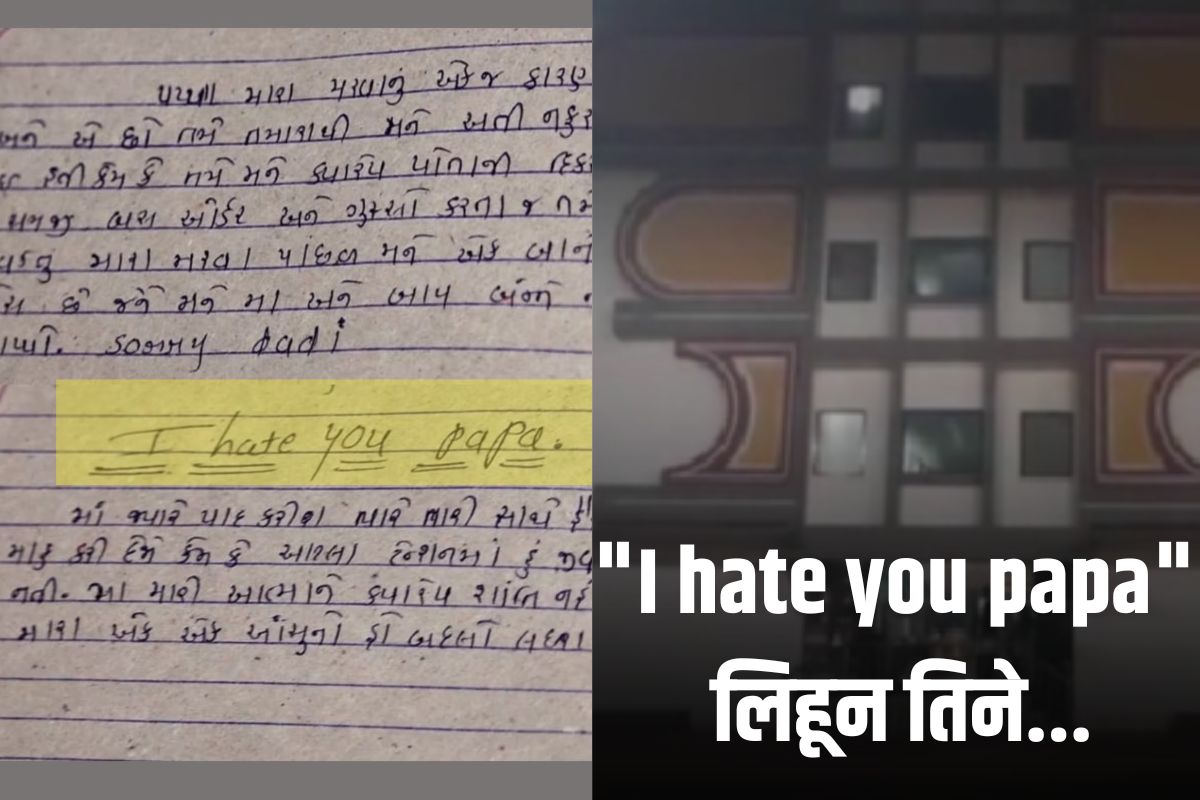 મારા મરવાનું એક જ કારણ
અને એ છો તમે તમારાથી મને અતી નફર
કેમ કે તમે મને ક્યારેય પોતાની દિકર
સમજી બાસ ઓર્ડર અને ગુસ્સો કરતા જ તમે
મારા મરવા પાછળ મને એક વાતનું
છે જેને મને મા અને બાપ બંનેનો
Sorry dadi
I hate you papa.
માં જ્યારે યાદ કરીશ ત્યારે તારી સાથે હું
માફ કરી દેજે કેમ કે આટલા ટેન્શનમાં હું જીવ
નતી. મા મારી આત્માને ક્યારેય શાંતિ નઈ
મારા એક એક આંસુનો હું બદલો લઇશ
"I hate you papa"
लिहून तिने...